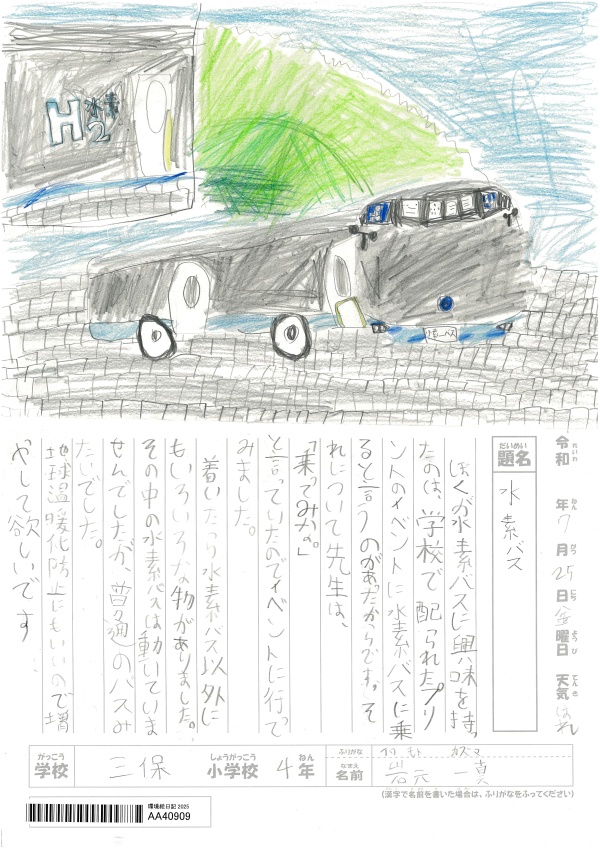 H2
水素
令和 年 7月 25日 金曜日 天気 はれ
れいわ ねん がつ にち ようび てんき
だいめい
題名
水素バス
ぼくが水素バスに興味を持っ
たのは、学校で配られたプリ
ントのイベントに水素バスに乗
ると言うのがあったからです。そ
れについて先生は、
「乗ってみかな。」
と言っていたのでイベントに行って
みました。
着いたら水素バス以外に
もいろいろな物がありました。
その中の水素バスは動いていま
せんでしたが、普通のバスみ
たいでした。
地球温暖化防止にもいいので増
やして欲しいです
がっこう しょうがっこう ねん
学校 三保 小学校 4年
ふりがな イワモト カズマ
なまえ
名前 岩元 一真
(漢字で名前を書いた場合は、ふりがなをふってください)
環境絵日記 2025
AA40909